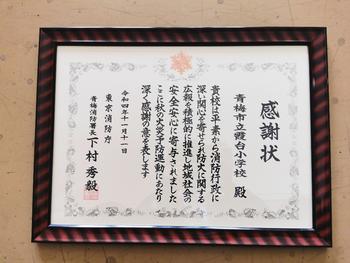 感謝状
青梅市立霞台小学校 殿
貴校は平素から消防行政に
深い関心を寄せられ防火に関する
広報を積極的に推進し地域社会の
安全安心に寄与されました
ここに秋の火災予防運動にあたり
深く感謝の意を表します
令和四年十一月十一日
東京消防庁
青梅消防署長 下村秀毅